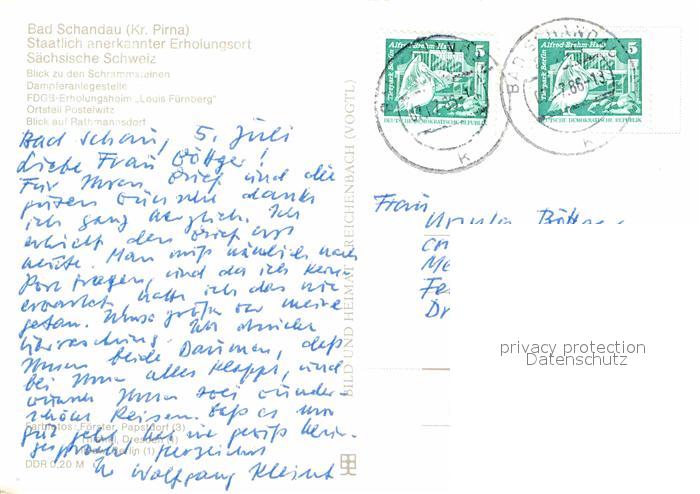 Bad Schandau (Kr. Pirna)
Staatlich anerkannter Erholungsort
Sächsische Schweiz
Blick zu den Schrammsteinen
Dampferanlegestelle
FDGB-Erholungsheim „Louis Fürnberg"
Ortsteil Postelwitz
Blick auf Rathmannsdorf
Bad Schandau, 5. Juli
Liebe Frau Böttger!
Für Ihren Brief und die
guten Wünsche danke
ich ganz herzlich. Ich
erhielt den Brief erst
heute. Man muß nämlich nach
Post fragen, und da ich keine
erwartet hatte ich das nie
getan. Umso größer war meine
Überraschung. Ich drücke
Ihnen beide Daumen, daß
bei Ihnen alles klappt, und
wünsche Ihnen zwei wunder-
schöne Reisen. Daß es uns
gut geht,
Ihr Wolfgang Kleint
Farbfotos: Förster, Papstdorf (3)
Dresden
Berlin (1)
DDR 0,20 M
BILD UND HEIMAT REICHENBACH (VOGTL)
Alfred-Brehm-Haus
5
Tierpark Berlin
DEUTSCHE DEMOKRATISCHE REPUBLIK
Alfred-Brehm-Haus
5
Tierpark Berlin
DEUTSCHE DEMOKRATISCHE REPUBLIK
BAD SCHANDAU
K
K
Frau
Ursula
privacy protection
Datenschutz